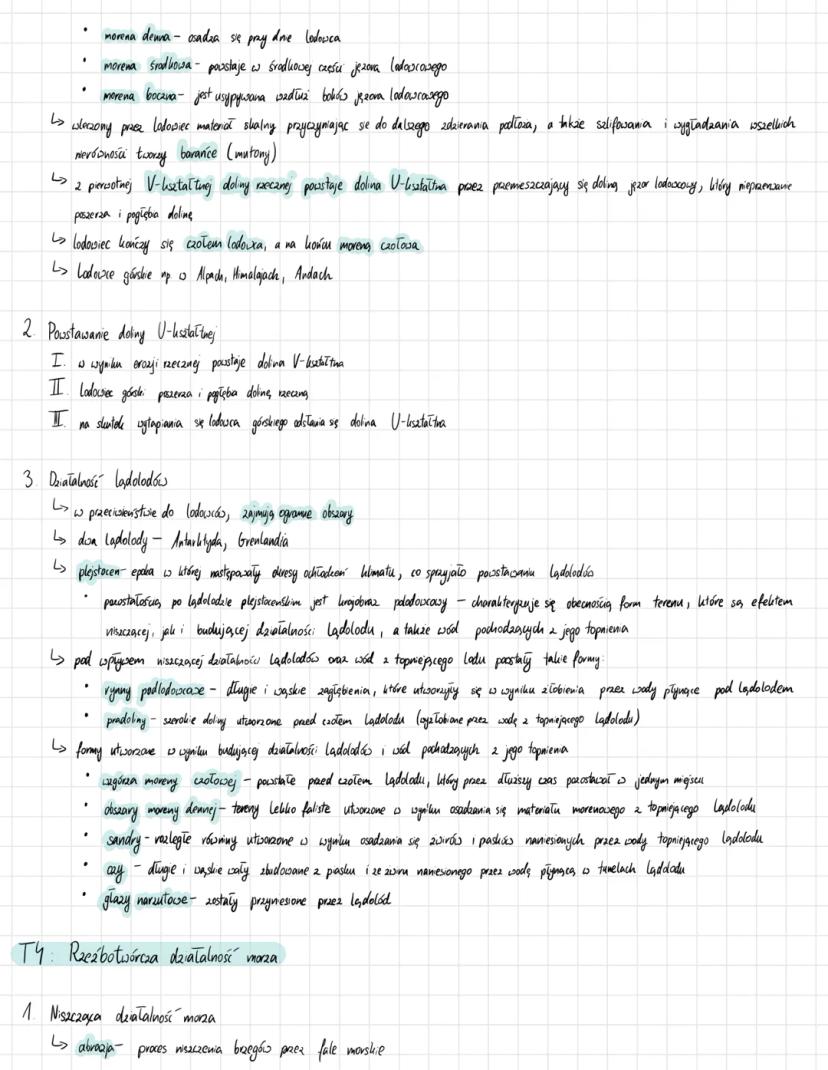 • morena denna - osadza się przy dnie lodowca
• morena środkowa - powstaje w środkowej części jęzora lodowcowego
• morena boczna - jest usypywana wzdłuż boków jęzora lodowcowego
↳ wleczony przez lodowiec materiał skalny przyczyniając sie do dalszego zdzierania podłoża, a także szlifowania i wygładzania wszelkich
nierówności tworzy barańce (mutony)
↳ z pierwotnej V-kształtnej doliny rzecznej powstaje dolina U-kształtna przez przemieszczający się doliną jęzor lodowcowy, który nieprzerwanie
poszerza i pogłębia dolinę
↳ lodowiec kończy się czołem lodowca, a na końcu moreną czołową
↳ Lodowce górskie np. w Alpach, Himalajach, Andach
2. Powstawanie doliny U-kształtnej
I. w wyniku erozji rzecznej powstaje dolina V-kształtna
II. lodowiec górski poszerza i pogłębia dolinę rzeczną
III. na skutek wytapiania się lodowca górskiego odsłania się dolina U-kształtna
3. Działalność lądolodów
↳ w przeciwieństwie do lodowców, zajmują ogromne obszary
↳ dwa lądolody - Antarktyda, Grenlandia
↳ plejstocen - epoka w której następowały okresy ochłodzeń klimatu, co sprzyjało powstawaniu lądolodów
• pozostałością po lądolodzie plejstoceńskim jest krajobraz polodowcowy - charakteryzuje się obecnością form terenu, które są efektem
niszczącej, jak i budującej działalności lądolodu, a także wód pochodzących z jego topnienia
↳ pod wpływem niszczącej działalności lądolodów oraz wód z topniejącego lodu powstały takie formy:
• rynny podlodowcowe - długie i wąskie zagłębienia, które utworzyły się w wyniku żłobienia przez wody płynące pod lądolodem
• pradoliny - szerokie doliny utworzone przed czołem lądolodu (wyżłobione przez wodę z topniejącego lądolodu)
↳ formy utworzone w wyniku budującej działalności lądolodów i wód pochodzących z jego topnienia
• wzgórza moreny czołowej - powstałe przed czołem lądolodu, który przez dłuższy czas pozostawał w jednym miejscu
• obszary moreny dennej - tereny lekko faliste utworzone w wyniku osadzania się materiału morenowego z topniejącego lądolodu
• sandry - rozległe równiny utworzone w wyniku osadzania się żwirów i piasków naniesionych przez wody topniejącego lądolodu
• ozy - długie i wąskie wały zbudowane z piasku i ze żwiru naniesionego przez wodę płynącą w tunelach lądolodu
• głazy narzutowe - zostały przyniesione przez lądolód
T4: Rzeźbotwórcza działalność morza
1. Niszcząca działalność morza
↳ abrazja - proces niszczenia brzegów przez fale morskie